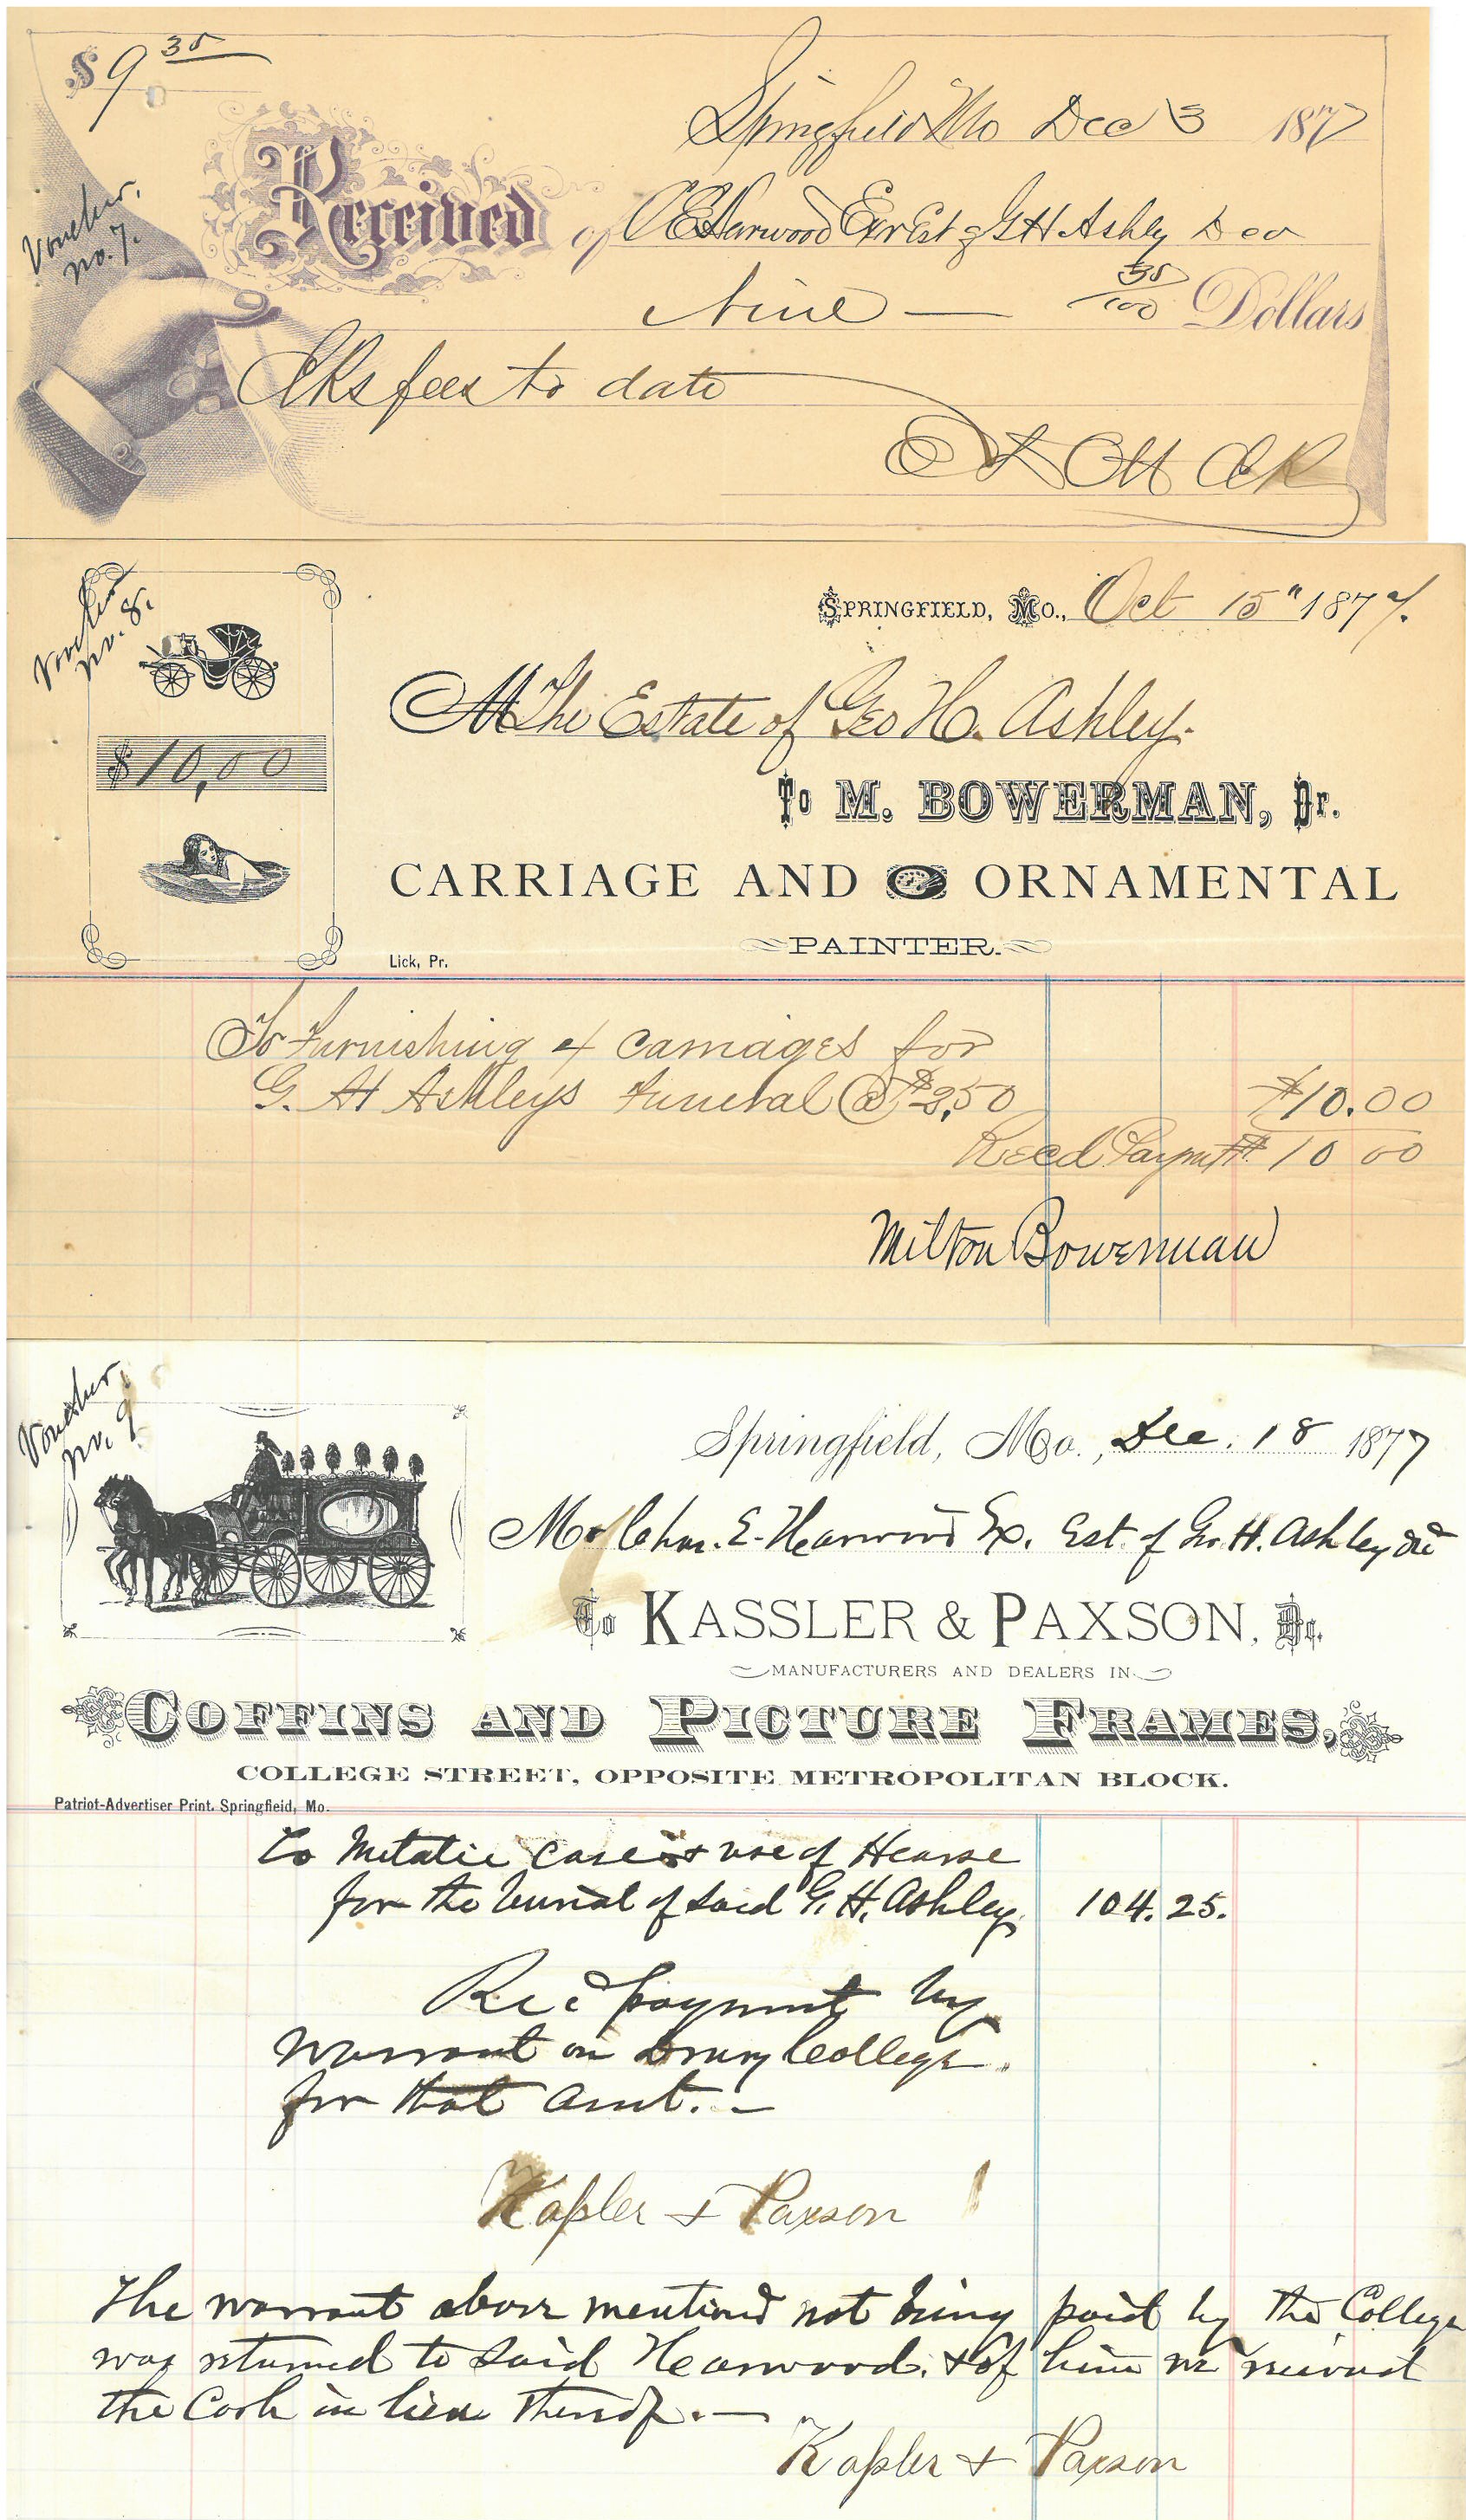 $9 35
Springfield Mo Dec 3 1877
Voucher, no. 7.
Received of C E Harwood Exr Est of G H Ashley Dec
Nine — 35/100 Dollars
Clks fees to date
Clk
Voucher no. 8.
SPRINGFIELD, Mo., Oct 15" 1877.
M The Estate of Geo H. Ashley.
$10,00
To M. BOWERMAN, Dr.
CARRIAGE AND ORNAMENTAL
PAINTER.
Lick, Pr.
To Furnishing 4 Carriages for
G. H Ashleys Funeral @ $2,50 $10.00
Recd Paymt $10 00
Milton Bowerman
Voucher, no. 9
Springfield, Mo., Dec. 18 1877
Mr Chas. E. Harwood Ex. Est. of Geo. H. Ashley Decd
To KASSLER & PAXSON, Dr.
MANUFACTURERS AND DEALERS IN
COFFINS AND PICTURE FRAMES,
COLLEGE STREET, OPPOSITE METROPOLITAN BLOCK.
Patriot-Advertiser Print. Springfield, Mo.
To Metalic Case & use of Hearse
for the burial of said G. H. Ashley. 104.25.
Recd payment by
warrant on Drury College.
for that amt. —
Kaßler & Paxson
The warrant above mentiond not being paid by the College
was returned to said Hearwood. & of him we received
the Cash in lieu thereof. —
Kaßler & Paxson